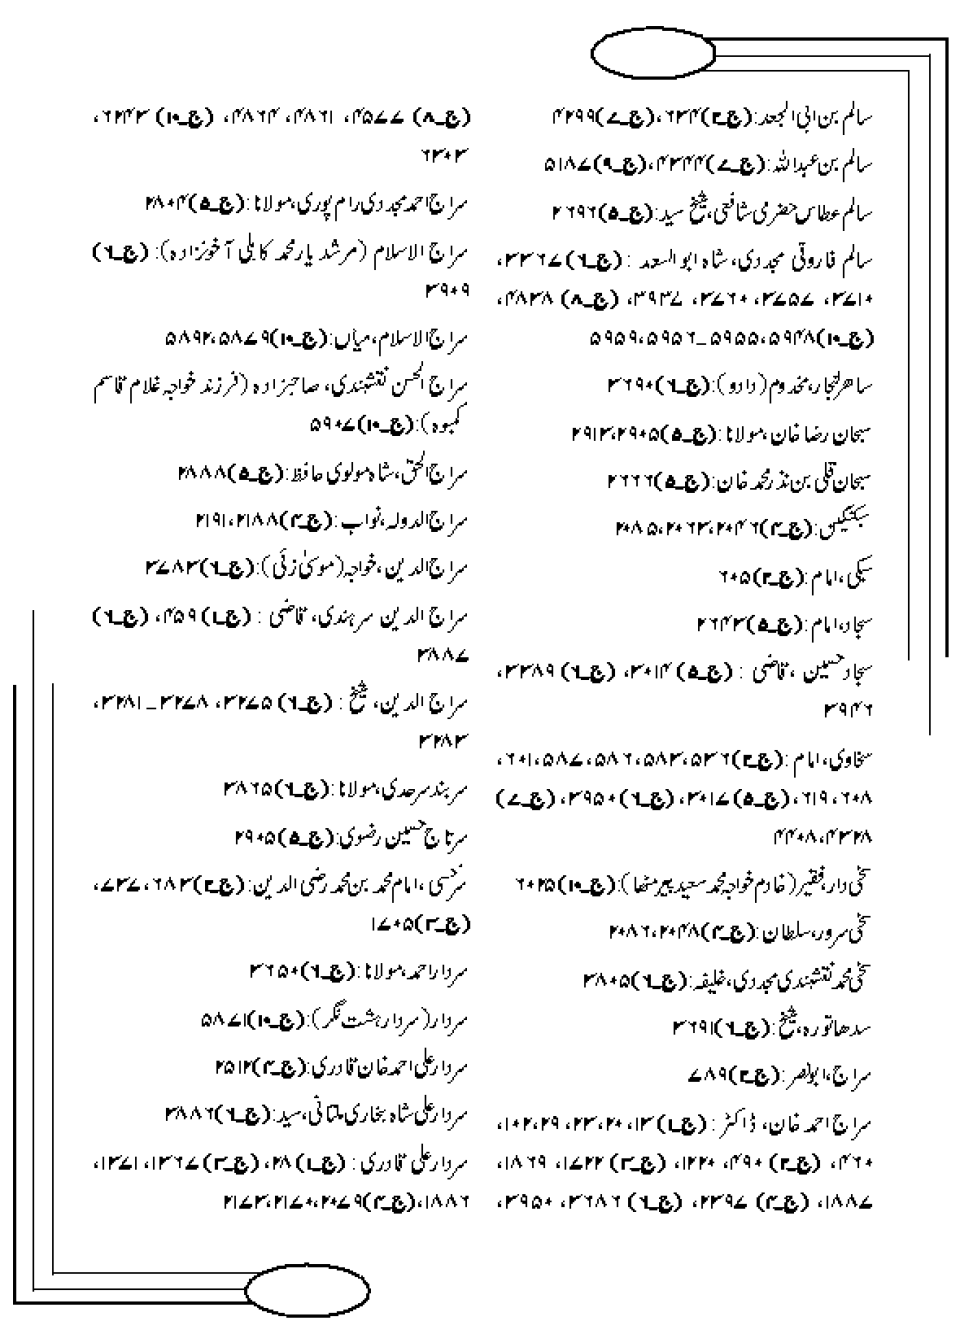 سالم بن ابی الجعد:(ج۔۲)۶۳۴، (ج۔۷)۴۲۹۹
سالم بن عبداللہ:(ج۔۷)۴۳۴۴، (ج۔۹)۵۱۸۷
سالم عطاس حضرمی شافعی، شیخ سید:(ج۔۵)۲۶۹۶
سالم فاروقی مجددی، شاہ ابوالسعد :(ج۔۶)۳۳۶۷،
۳۷۱۰، ۳۷۵۷، ۳۷۶۰، ۳۹۳۷، (ج۔۸) ۴۸۳۸،
(ج۔۱۰)۵۹۴۸، ۵۹۵۵۔۵۹۵۶، ۵۹۵۹
ساھرلنجار، مخدوم (دادو):(ج۔۶)۳۶۹۰
سبحان رضا خان، مولانا:(ج۔۵)۲۹۰۵، ۲۹۱۳
سبحان قلی بن نذر محمد خان:(ج۔۵)۲۶۶۶
سبکتگین:(ج۔۴)۲۰۴۶، ۲۰۶۳، ۲۰۸۵
سبکی، امام:(ج۔۲)۶۰۵
سجاد، امام:(ج۔۵)۲۶۴۳
سجاد حسین ، قاضی :(ج۔۵) ۳۰۱۴، (ج۔۶) ۳۳۸۹،
۳۹۴۶
سخاوی، امام:(ج۔۲)۵۳۶، ۵۸۳، ۵۸۶، ۵۸۷، ۶۰۱،
۶۰۸، ۶۱۹، (ج۔۵)۳۰۱۷، (ج۔۶)۳۹۵۰، (ج۔۷)
۴۳۲۸، ۴۴۰۸
سخی دار، فقیر (خادم خواجہ محمد سعید پیر مٹھا):(ج۔۱۰)۶۰۲۵
سخی سرور، سلطان:(ج۔۴)۲۰۴۸، ۲۰۸۶
سخی محمد نقشبندی مجددی، خلیفہ:(ج۔۶)۳۸۰۵
سدھاتورہ، شیخ:(ج۔۶)۳۶۹۱
سراج، ابونصر:(ج۔۲)۷۸۹
سراج احمد خان، ڈاکٹر :(ج۔۱)۱۳، ۲۰، ۲۳، ۲۹، ۱۰۲،
۴۶۰، (ج۔۲) ۴۹۰، ۱۲۲۰، (ج۔۳) ۱۷۲۲، ۱۸۶۹،
۱۸۸۷، (ج۔۴) ۲۳۹۷، (ج۔۶) ۳۶۸۶، ۳۹۵۰،
(ج۔۸) ۴۵۷۷، ۴۸۶۱، ۴۸۶۴، (ج۔۱۰) ۶۲۴۳،
۶۳۰۳
سراج احمد مجددی رام پوری، مولانا:(ج۔۵)۲۸۰۴
سراج الاسلام (مرشد یار محمد کابلی آخونزادہ): (ج۔۶)
۳۹۰۹
سراج الاسلام، میاں:(ج۔۱۰)۵۸۷۹، ۵۸۹۲
سراج الحسن نقشبندی، صاحبزادہ (فرزند خواجہ غلام قاسم
کمبوہ):(ج۔۱۰)۵۹۰۷
سراج الحق، شاہ مولوی حافظ:(ج۔۵)۲۸۸۸
سراج الدولہ، نواب:(ج۔۴)۲۱۸۸، ۲۱۹۱
سراج الدین، خواجہ (موسیٰ زئی):(ج۔۶)۳۷۸۳
سراج الدین سرہندی، قاضی :(ج۔۱) ۴۵۹، (ج۔۶)
۳۸۸۷
سراج الدین، شیخ :(ج۔۶) ۳۲۷۵، ۳۲۷۸۔۳۲۸۱،
۳۲۸۳
سربند سرحدی، مولانا:(ج۔۶)۳۸۶۵
سرتاج حسین رضوی:(ج۔۵)۲۹۰۵
سرخسی، امام محمد بن محمد رضی الدین:(ج۔۲)۶۸۳، ۷۳۷،
(ج۔۳)۱۷۰۵
سردار احمد، مولانا:(ج۔۶)۳۶۵۰
سردار (سردار ہشت نگر):(ج۔۱۰)۵۸۷۱
سردار علی احمد خان قادری:(ج۔۴)۲۵۱۲
سردار علی شاہ بخاری ملتانی، سید:(ج۔۶)۳۸۸۶
سردار علی قادری :(ج۔۱) ۲۸، (ج۔۳)۱۳۶۷، ۱۳۷۱،
۱۸۸۶، (ج۔۴)۲۰۷۹، ۲۱۷۰، ۲۱۷۳